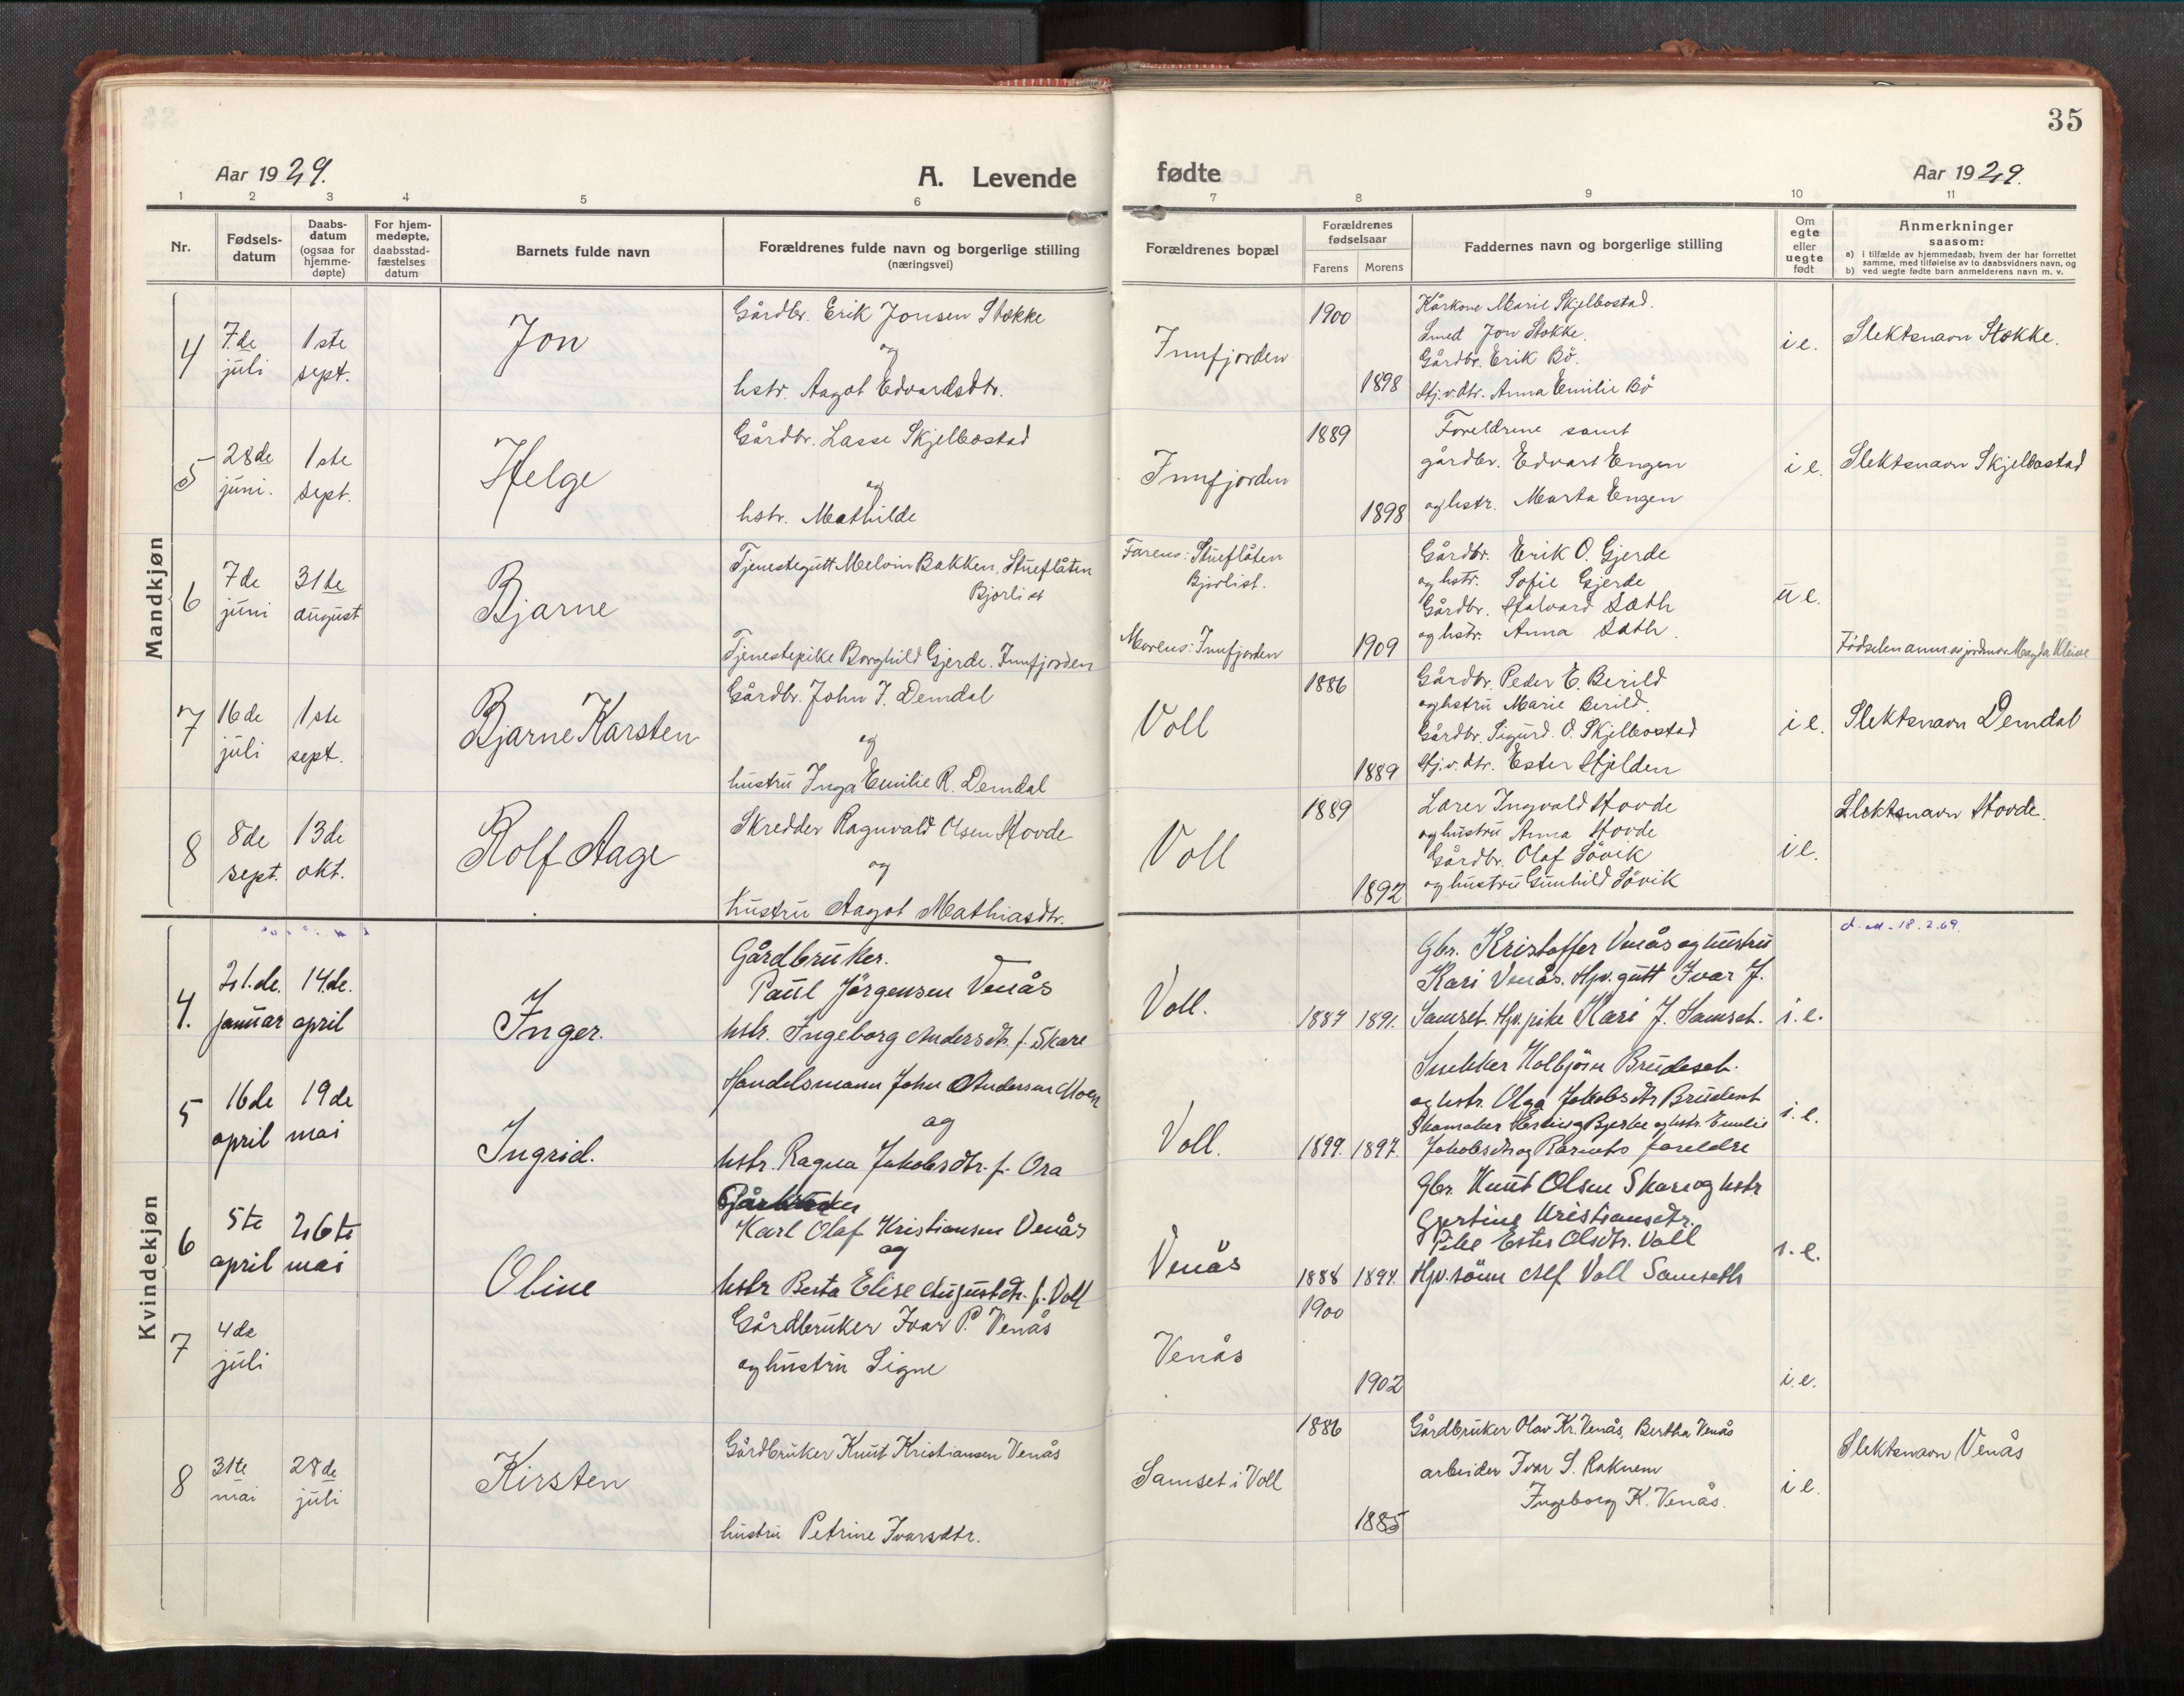 35
Aar 1929.
A. Levende
fødte
Aar 1929.
1 2 3 4 5 6 7 8 9 10 11
Nr.
Fødsels-
datum
Daabs-
datum
(ogsaa for
hjemme-
døpte)
For hjem-
medøpte,
daabsstad-
fæstelses
datum
Barnets fulde navn
Forældrenes fulde navn og borgerlige stilling
(næringsvei)
Forældrenes bopæl
Forældrenes
fødselsaar
Farens Morens
Faddernes navn og borgerlige stilling
Om
egte
eller
uegte
født
Anmerkninger
saasom:
a) i tilfælde av hjemmedaab, hvem der har forrettet
samme, med tilføielse av to daabsvidners navn, og
b) ved uegte fødte barn anmelderens navn m. v.
Mandkjøn
4
7.de
juli
1ste
sept.
Jon
Gårdbr. Erik Jonsen Stokke
og
hstr. Aagot Edvardsdtr.
Innfjorden
1900
1898
Kårkone Marie Skjelbostad.
Smed Jon Stokke.
Gårdbr. Erik Bö.
Hj.v.dtr. Anna Emilie Bö
i e.
Slektsnavn Stokke.
5
28de
juni.
1ste
sept.
Helge
Gårdbr. Lasse Skjelbostad
og
hstr. Mathilde
Innfjorden
1889
1898
Foreldrene samt
gårdbr. Edvart Engen
og hstr. Marta Engen
i e.
Slektsnavn Skjelbostad
6
7de
juni
31te
august
Bjarne
Tjenestegutt Melvin Bakken, Stueflåten
Bjorlist
Tjenestepike Borghild Gjerde. Innfjorden
Farens: Stueflåten
Bjorlist.
Morens: Innfjorden
1909
Gårdbr. Erik O. Gjerde
og hstr. Sofie Gjerde
Gårdbr. Halvard Sæth
og hstr. Anna Sæth.
u e.
Fødselen anm av jordmor Magda Kleive
7
16de
juli
1ste
sept.
Bjarne Karsten
Gårdbr. John J. Demdal
og
hustru Inga Emilie R. Demdal
Voll
1886
1889
Gårdbr. Peder E. Berild
og hstru Marie Berild.
Gårdbr. Sigurd. O. Skjelbostad
Hj.v.dtr. Ester Hjelden
i e.
Slektsnavn Demdal
8
8de
sept.
13de
okt.
Rolf Aage
Skredder Ragnvald Olsen Hovde
og
hustru Aagot Mathiasdtr.
Voll
1889
1892
Lærer Ingvald Hovde
og hustru Anna Hovde
Gårdbr. Olaf Sövik
og hustru Gunhild Sövik
i e.
Slektsnavn Hovde.
Kvindekjøn
4.
21.de.
januar
14de.
april
Inger.
Gårdbruker.
Paul Jörgensen Venås
hstr. Ingeborg Andersdtr. f. Skare
Voll.
1887 1891.
Gbr. Kristoffer Venås og hustru
Kari Venås. Hjv. gutt Ivar J.
Samset. Hjv. pike Kari J. Samset.
i. e.
18.2.69.
5
16de
april
19de
mai
Ingrid.
Handelsmann John Andersen Moen
og
hstr. Ragna Jakobsdtr. f. Ora
Voll.
1899. 1897.
Snekker Kolbjörn Brudeset.
og hstr. Olga Jakobsdtr Brudeset
Skomaker Herting Bjerke og hstr. Emilie
Jakobsdtr og Barnets foreldre
i. e.
6
5te
april
26te
mai
Oline
Karl Olaf Kristiansen Venås
og
hstr Berta Elise Augustdtr. f. Voll
Venås
1888 1894.
Gbr. Knut Olsen Skare og hstr
Gjertine Kristiansdtr.
Pike Ester Olsdtr. Voll
Hjv. sönn Alf Voll Samseth
i. e.
7
4de
juli
Gårdbruker Ivar P. Venås
og hustru Signe
Venås
1900
1902
i. e.
8
31te
mai
28de
juli
Kirsten
Gårdbruker Knut Kristiansen Venås
hustru Petrine Ivarsdtr.
Samset i Voll
1886
1885
Gårdbruker Olav Kr. Venås, Bertha Venås
arbeider Ivar S. Raknem
Ingeborg K. Venås.
i e.
Slektsnavn Venås